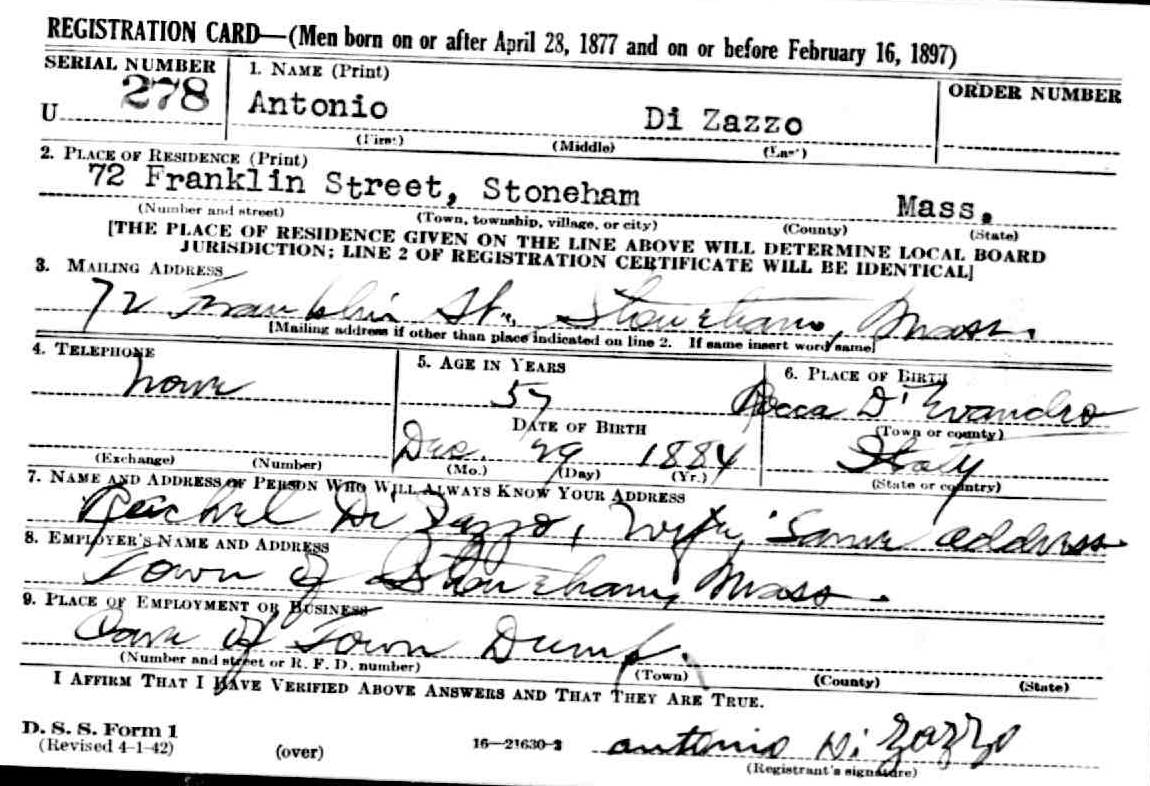 REGISTRATION CARD—(Men born on or after April 28, 1877 and on or before February 16, 1897)
SERIAL NUMBER
1. NAME (Print)
ORDER NUMBER
U 278
Antonio Di Zazzo
(First) (Middle) (Last)
2. PLACE OF RESIDENCE (Print)
72 Franklin Street, Stoneham Mass.
(Number and street) (Town, township, village, or city) (County) (State)
[THE PLACE OF RESIDENCE GIVEN ON THE LINE ABOVE WILL DETERMINE LOCAL BOARD
JURISDICTION; LINE 2 OF REGISTRATION CERTIFICATE WILL BE IDENTICAL]
3. MAILING ADDRESS
72 Franklin St., Stoneham, Mass.
[Mailing address if other than place indicated on line 2. If same insert word same]
4. TELEPHONE
none
(Exchange) (Number)
5. AGE IN YEARS
57
DATE OF BIRTH
Dec. 29 1884
(Mo.) (Day) (Yr.)
6. PLACE OF BIRTH
Rocca D'Evandro
(Town or county)
Italy
(State or country)
7. NAME AND ADDRESS OF PERSON WHO WILL ALWAYS KNOW YOUR ADDRESS
Rachel Di Zazzo, wife, Same address
8. EMPLOYER'S NAME AND ADDRESS
Town of Stoneham, Mass.
9. PLACE OF EMPLOYMENT OR BUSINESS
Care of Town Dump.
(Number and street or R. F. D. number) (Town) (County) (State)
I AFFIRM THAT I HAVE VERIFIED ABOVE ANSWERS AND THAT THEY ARE TRUE.
D. S. S. Form 1
(Revised 4-1-42) (over) 16—21630-2 Antonio Di Zazzo
(Registrant's signature)